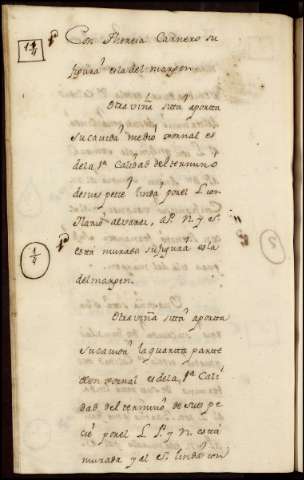 Con Florencia Carnero su
figura es la del margen.
Otra viña sita aporta
su cavida medio jornal es
de la 1ª Calidad del termino
de su espeçe linda por el L con
Manuel Alvarez, al P. N. y S.
está murada su figura es la
del margen.
Otra viña sita aporta
su cavida la quarta parte
de un jornal es de la 1ª Cali
dad del termino de su espe
cie por el L P. y N. está
murada y al S. linda con
1/4